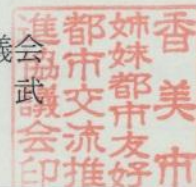 議会
武
香美市
姉妹都市友好
都市交流推
進協議会印